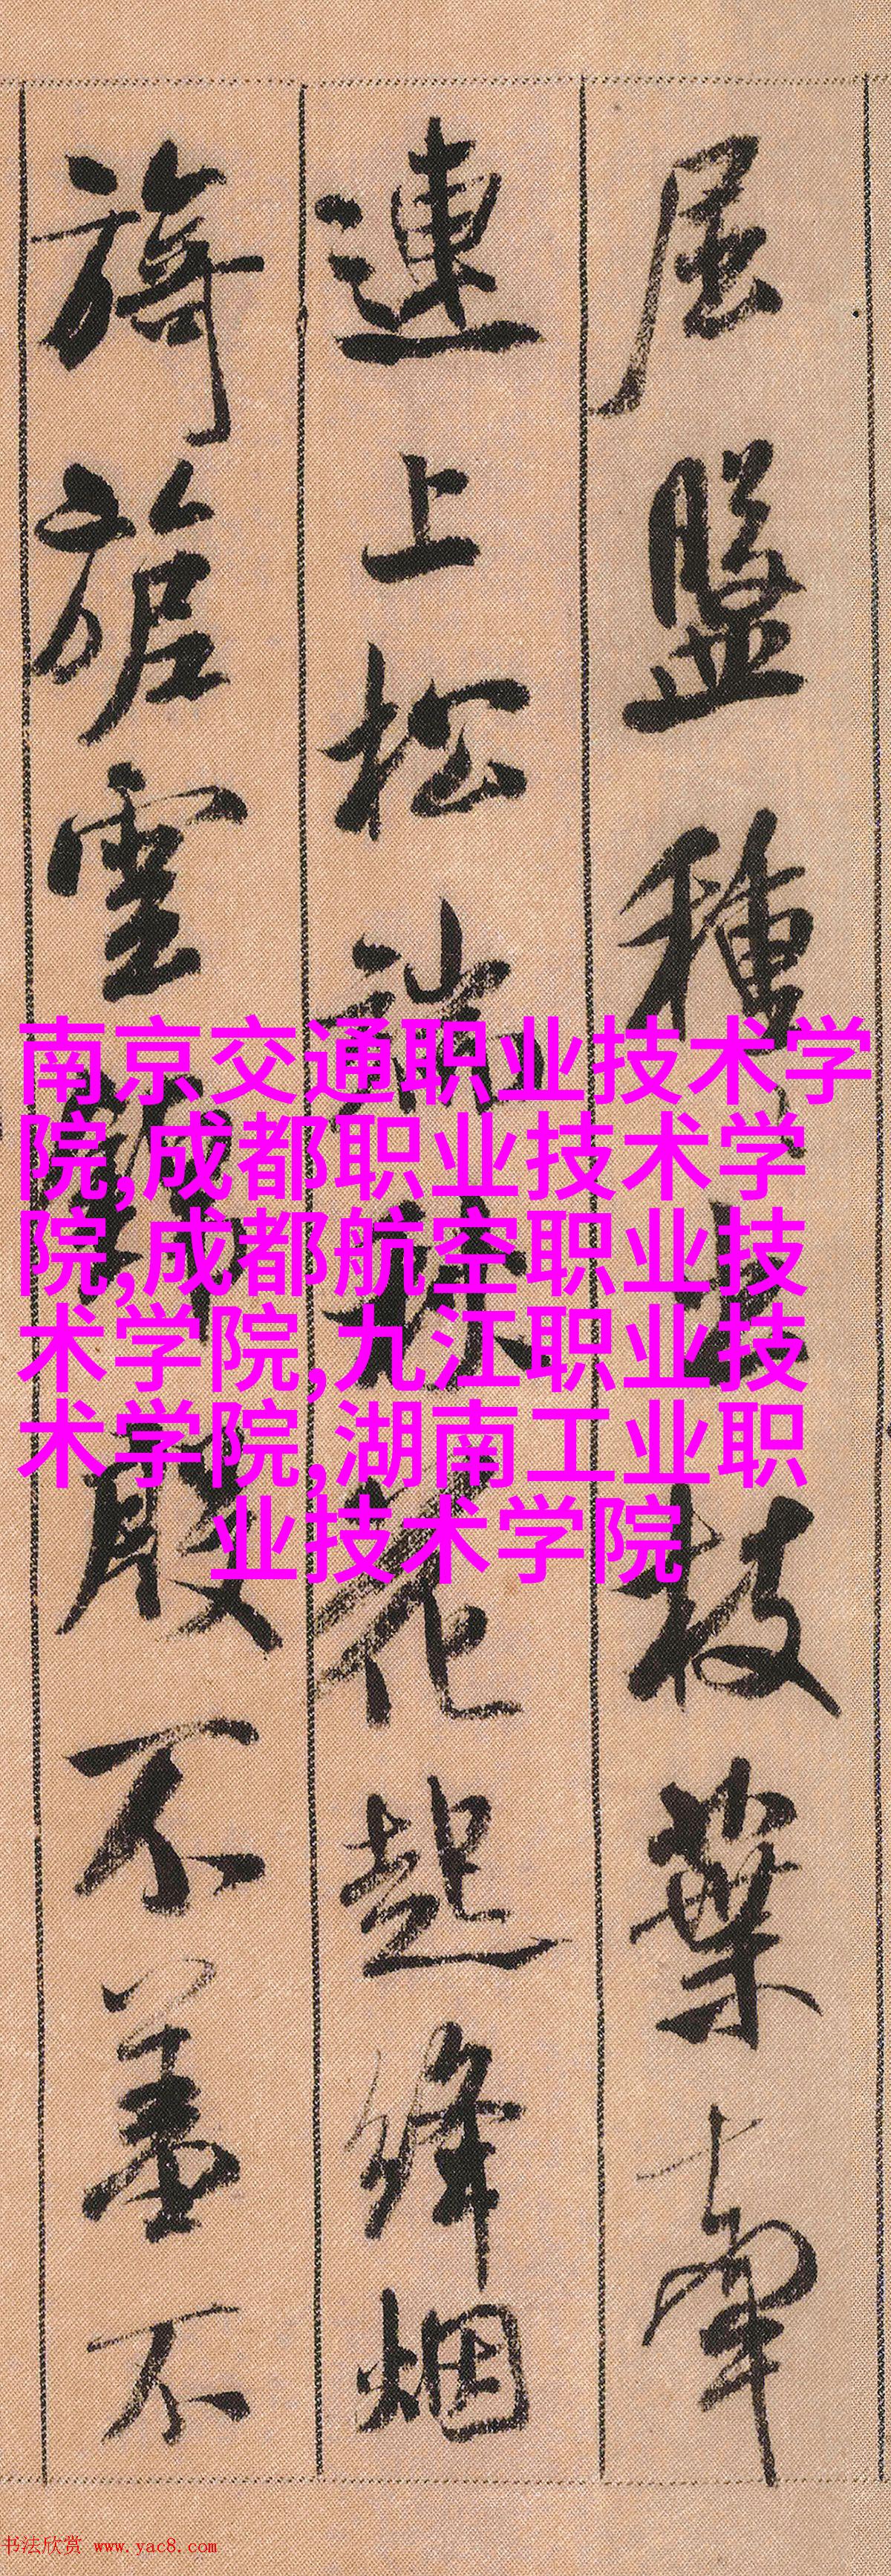 屈盤種出枝葉牽
連上松端秋花起絳烟
旖旎雲錦殷不羞不
南京交通职业技术学
院,成都职业技术学
院,成都航空职业技
术学院,九江职业技
术学院,湖南工业职
业技术学院
书法欣赏 www.yac8.com